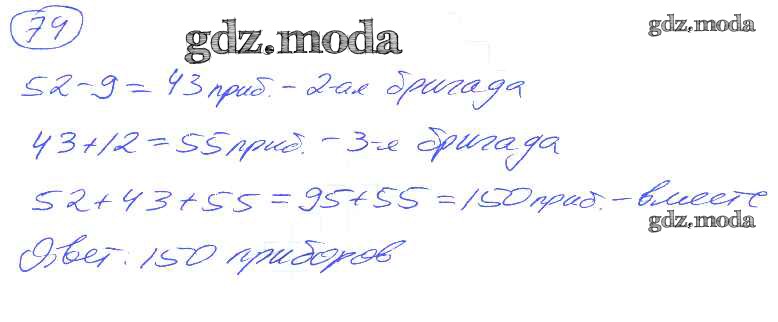 74
gdz.moda
gdz.moda
52-9=43 приб. - 2-ая бригада
43+12=55 приб. - 3-я бригада
52+43+55=95+55=150 приб. - вместе
gdz.moda
Ответ: 150 приборов